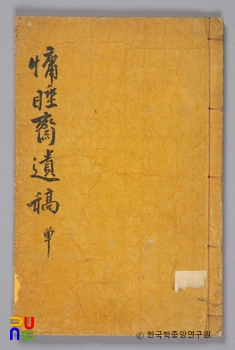 慵睡齋遺稿 單
ⓒ 한국학중앙연구원